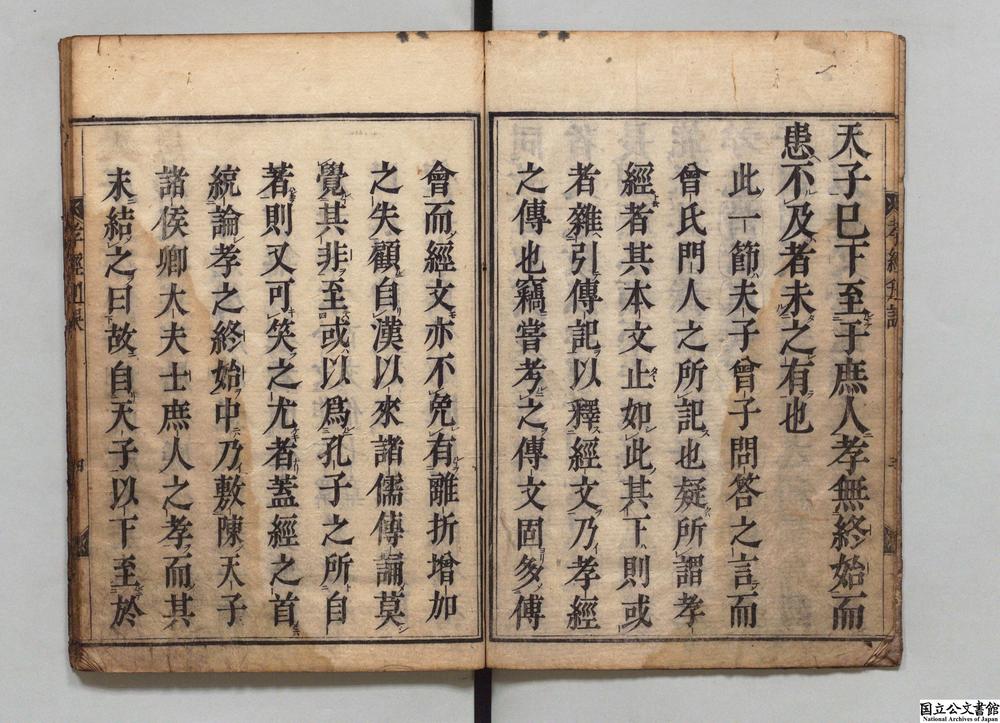 天子已下至于庶人孝無終始而
患不及者未之有也
此一節夫子曾子問答之言而
曾氏門人之所記也疑所謂孝
經者其本文止如此其下則或
者雜引傳記以釋經文乃孝經
之傳也竊嘗考之傳文固多傅
會而經文亦不免有離折增加
之失顧自漢以來諸儒傳誦莫
覺其非至或以爲孔子之所自
著則又可笑之尤者蓋經之首
統論孝之終始中乃敷陳天子
諸侯卿大夫士庶人之孝而其
末結之曰故自天子以下至於
孝經
四
国立公文書館
National Archives of Japan